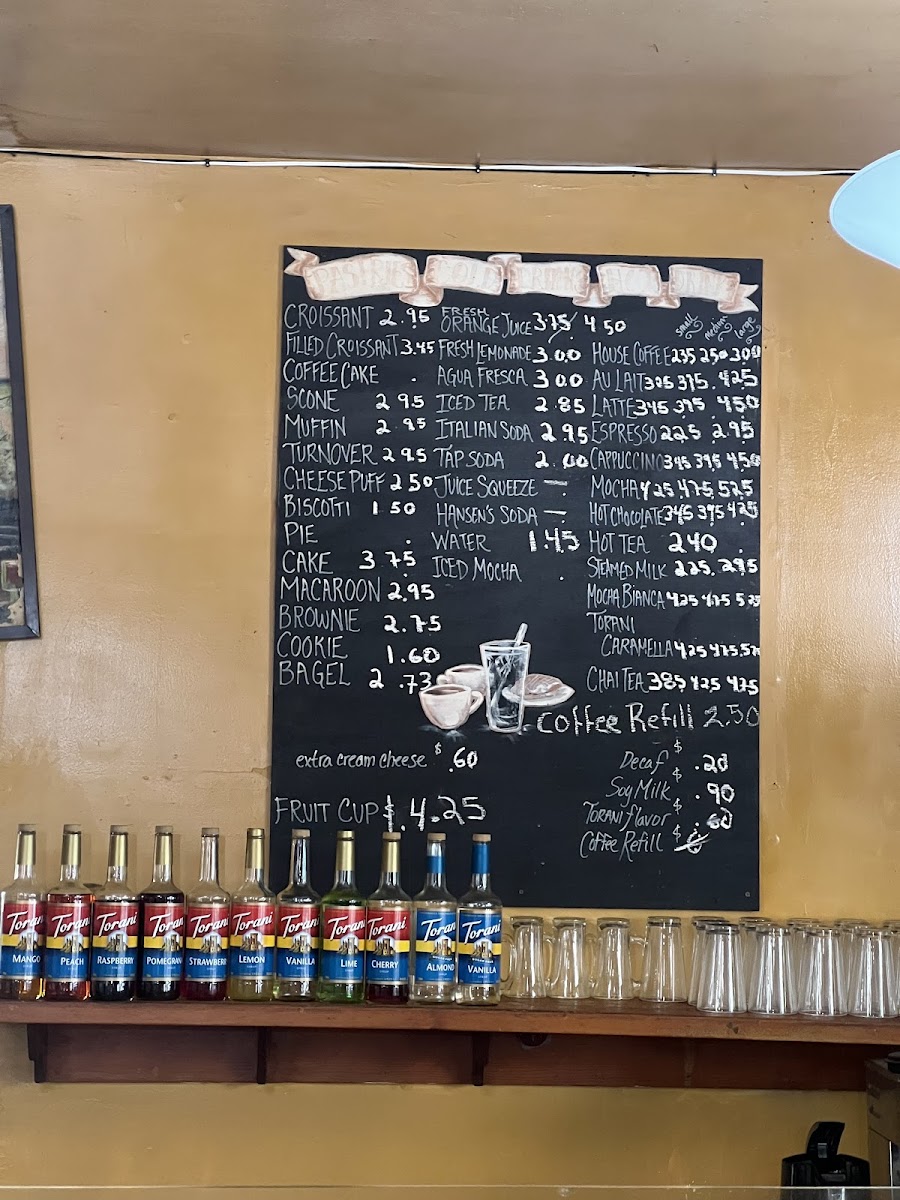 PASTRIES COLD DRINKS HOT DRINKS
CROISSANT 2.95
FILLED CROISSANT 3.45
COFFEE CAKE .
SCONE 2 95
MUFFIN 2.95
TURNOVER 2 95
CHEESE PUFF 2 50
BISCOTTI 1 50
PIE .
CAKE 3 75
MACAROON 2.95
BROWNIE 2.75
COOKIE 1.60
BAGEL 2 .73
extra cream cheese $ .60
FRUIT CUP $.4.25
FRESH
ORANGE JUICE 375 4 50
FRESH LEMONADE 3 00
AGUA FRESCA 3 00
ICED TEA 2 85
ITALIAN SODA 2 95
TAP SODA 2 00
JUICE SQUEEZE —
HANSEN'S SODA —
WATER 1.45
ICED MOCHA .
small medium large
HOUSE COFFEE 235 250 300
AU LAIT 305 375 425
LATTE 345 395 450
ESPRESSO 225 2.95
CAPPUCCINO 345 395 450
MOCHA 425 475 525
HOT CHOCOLATE 345 395 425
HOT TEA 240 .
STEAMED MILK 225 295
MOCHA BIANCA 425 475 525
TORANI
CARAMELLA 425 475 52
CHAI TEA 385 425 475
coffee Refill 2.50
Decaf $ .20
Soy Milk $ .90
TORANI flavor $ .60
Coffee Refill $
Torani MANGO
Torani PEACH
Torani RASPBERRY
Torani POMEGRAN
Torani STRAWBERR
Torani LEMON
Torani VANILLA
Torani LIME
Torani CHERRY
Torani ALMOND
Torani VANILLA